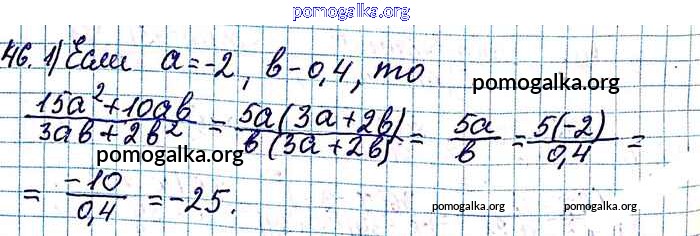 pomogalka.org
46. 1) Если a = -2, b - 0,4, то
pomogalka.org
15a² + 10ab / 3ab + 2b² = 5a(3a + 2b) / b(3a + 2b) = 5a / b = 5(-2) / 0,4 =
pomogalka.org
= -10 / 0,4 = -25.
pomogalka.org pomogalka.org